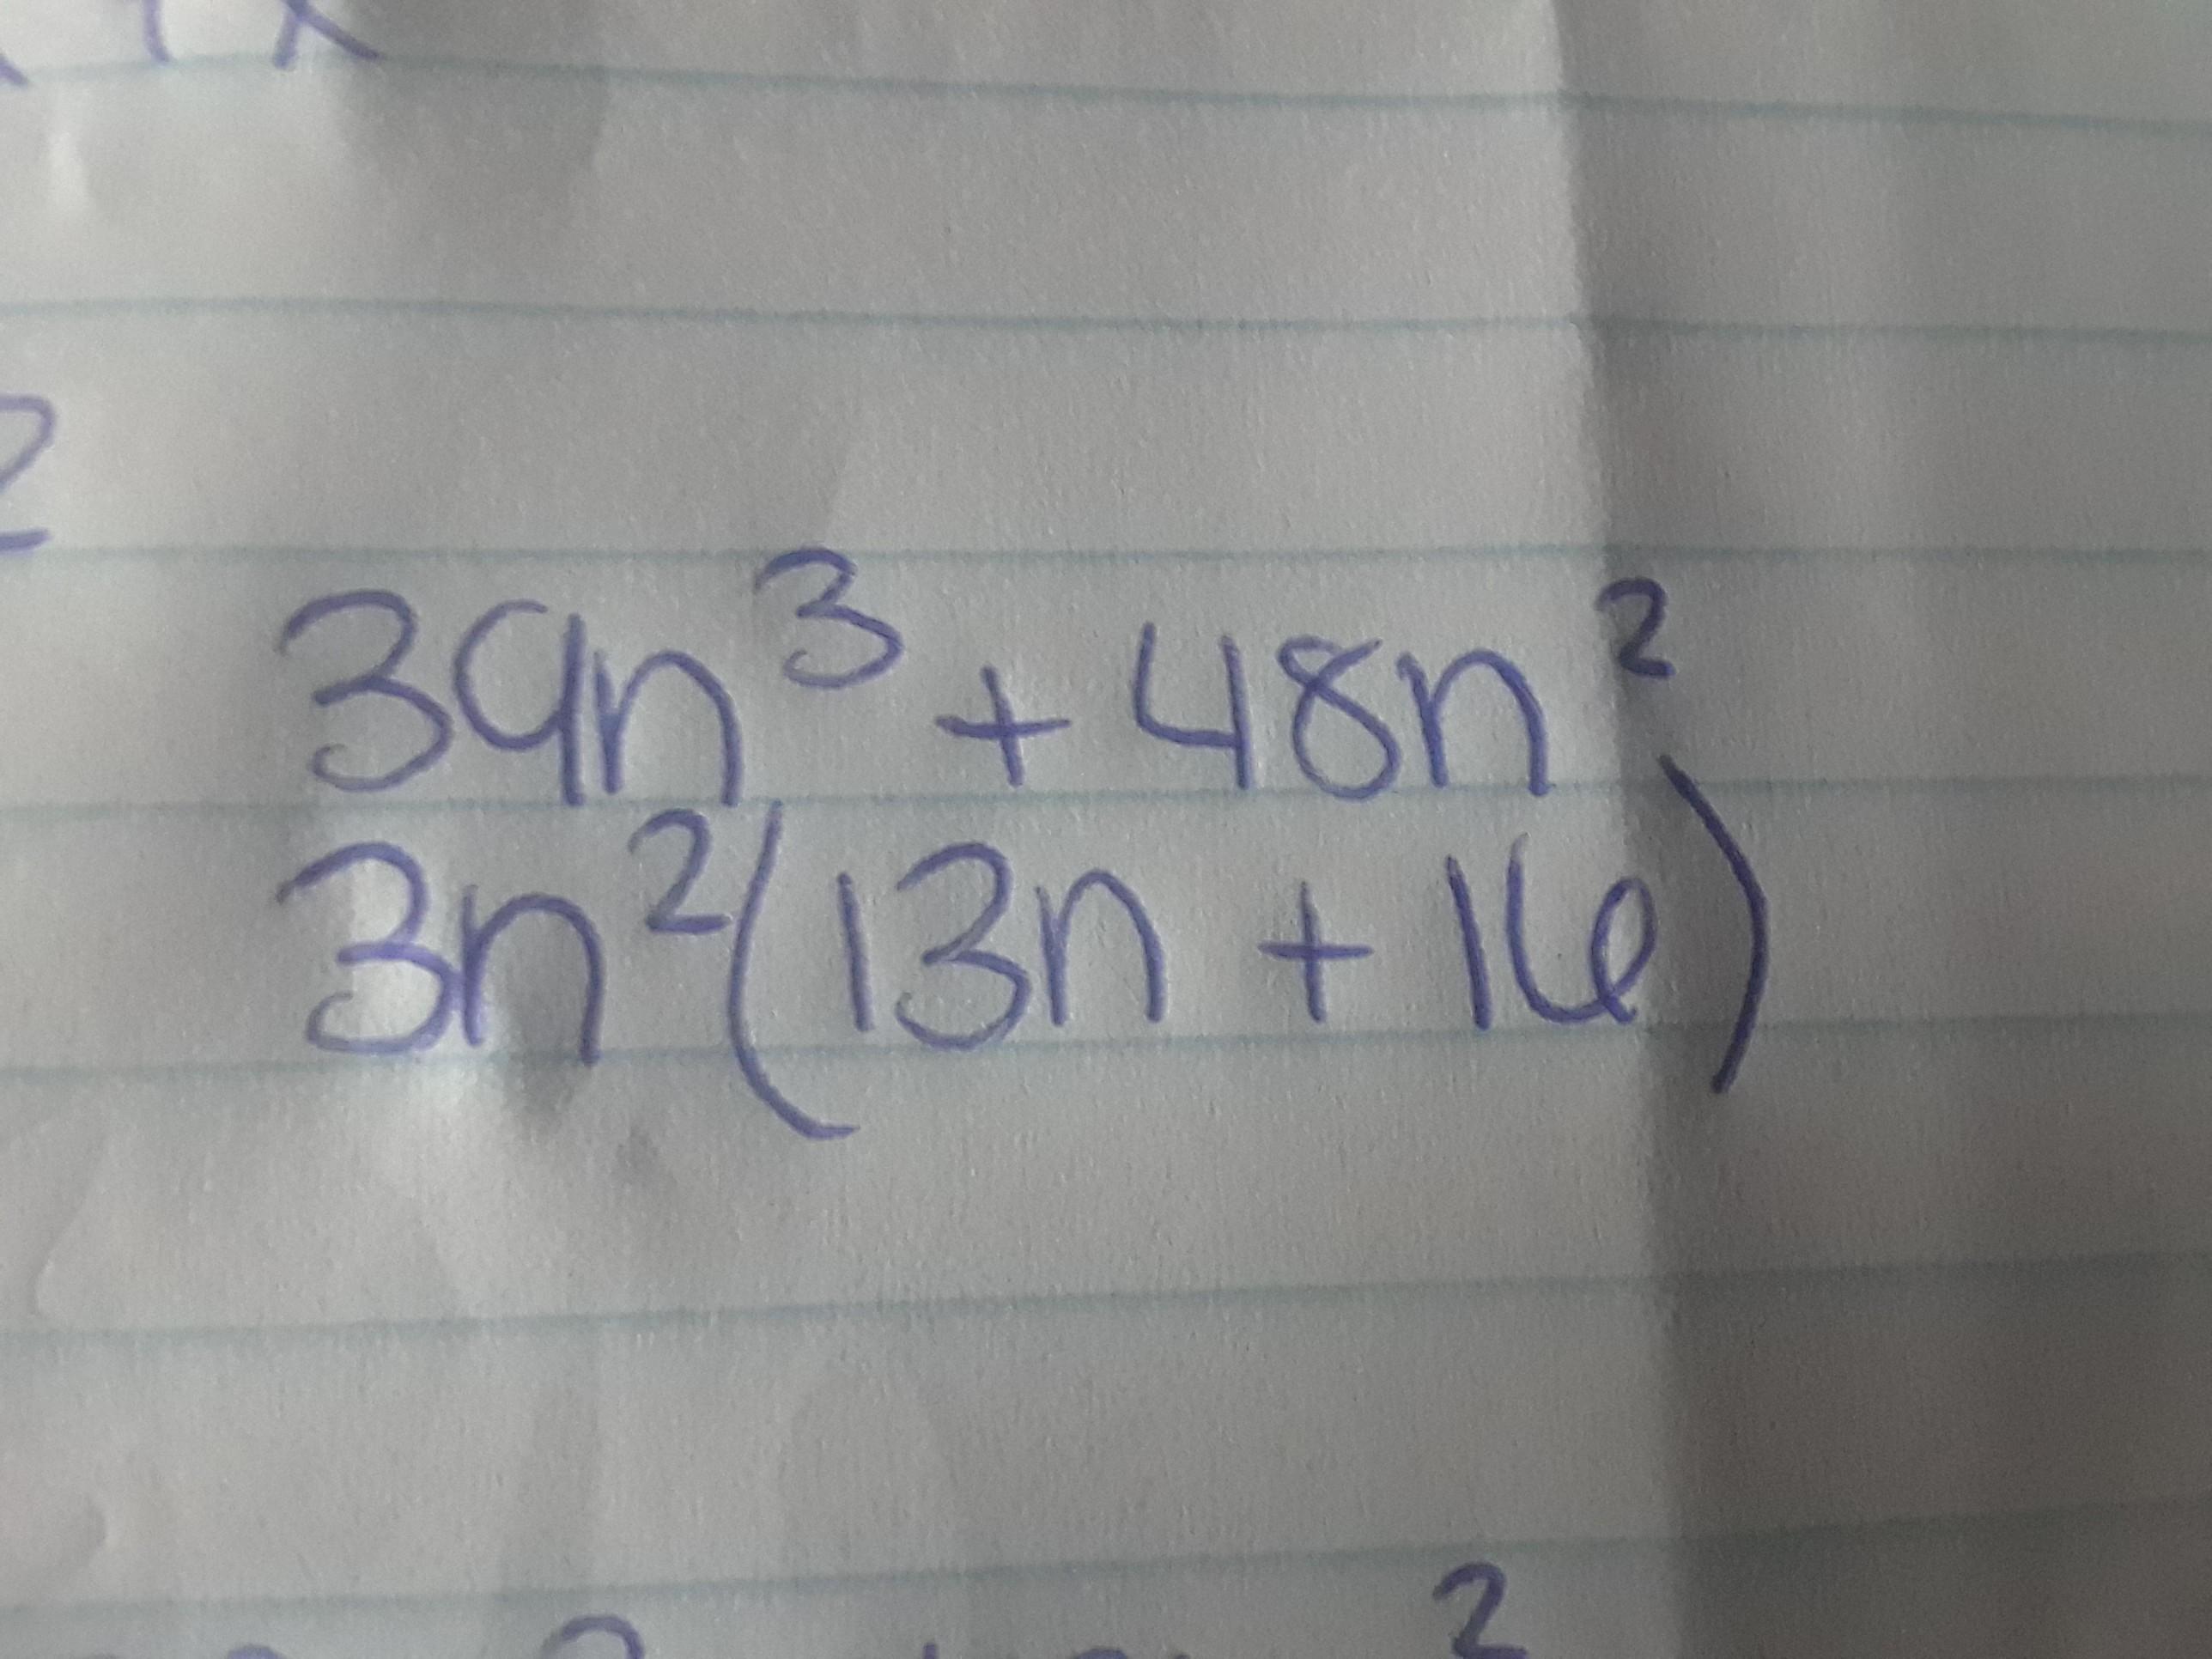 2
39n³ + 48n²
3n²(13n + 16)